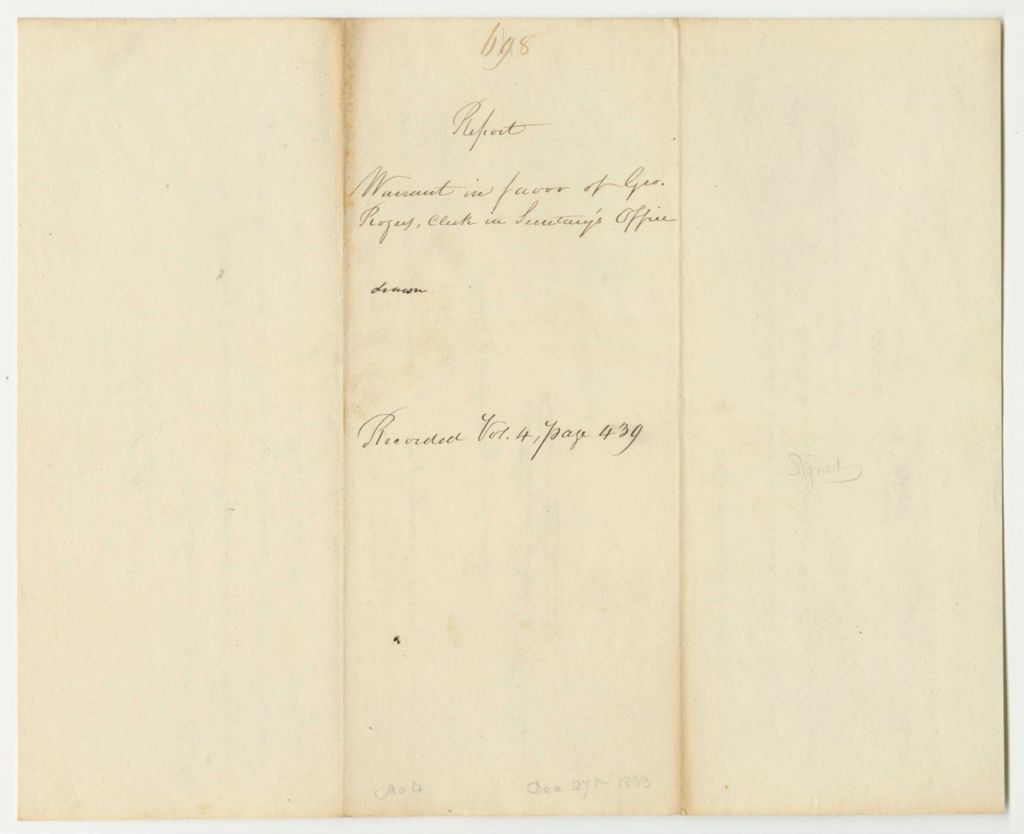 698
Report
Warrant in favor of Geo.
Rogers, Clerk in Secretary's Office
drawn
Recorded Vol. 4, page 439
Signed
No 4 Dec 27th 1833